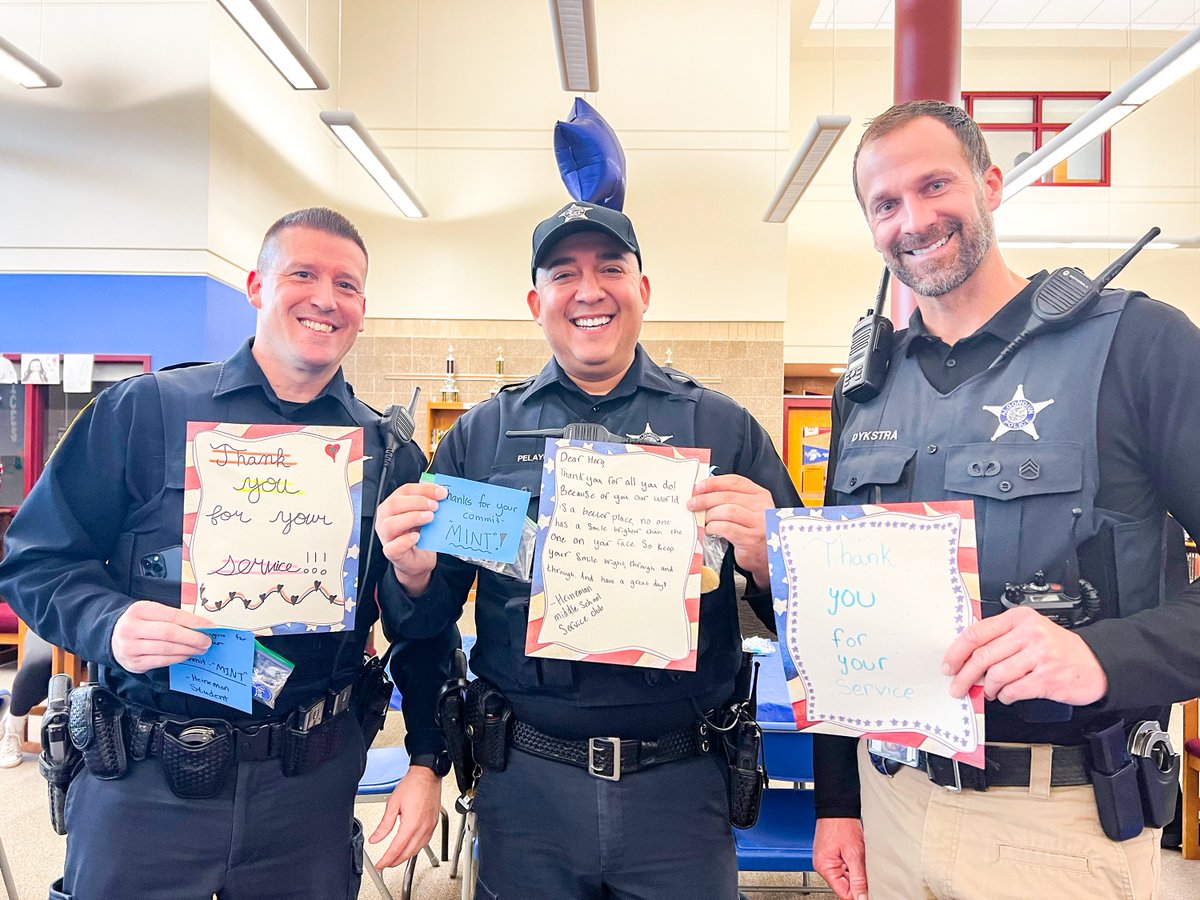 Thank
you
for your
service!!!
commit-MINT
- Heineman
Student
Thanks for your
commit-
"MINT!"
Dear Hero,
Thank you for all you do!
Because of you our world
is a better place, no one
has a smile greater than the
one on your face. So keep
your smile bright, through and
through. And have a great day!
- Heineman
middle School
Service club
PELAYO
Thank
you
for
your
Service
DYKSTRA
ALGONQUIN
POLICE